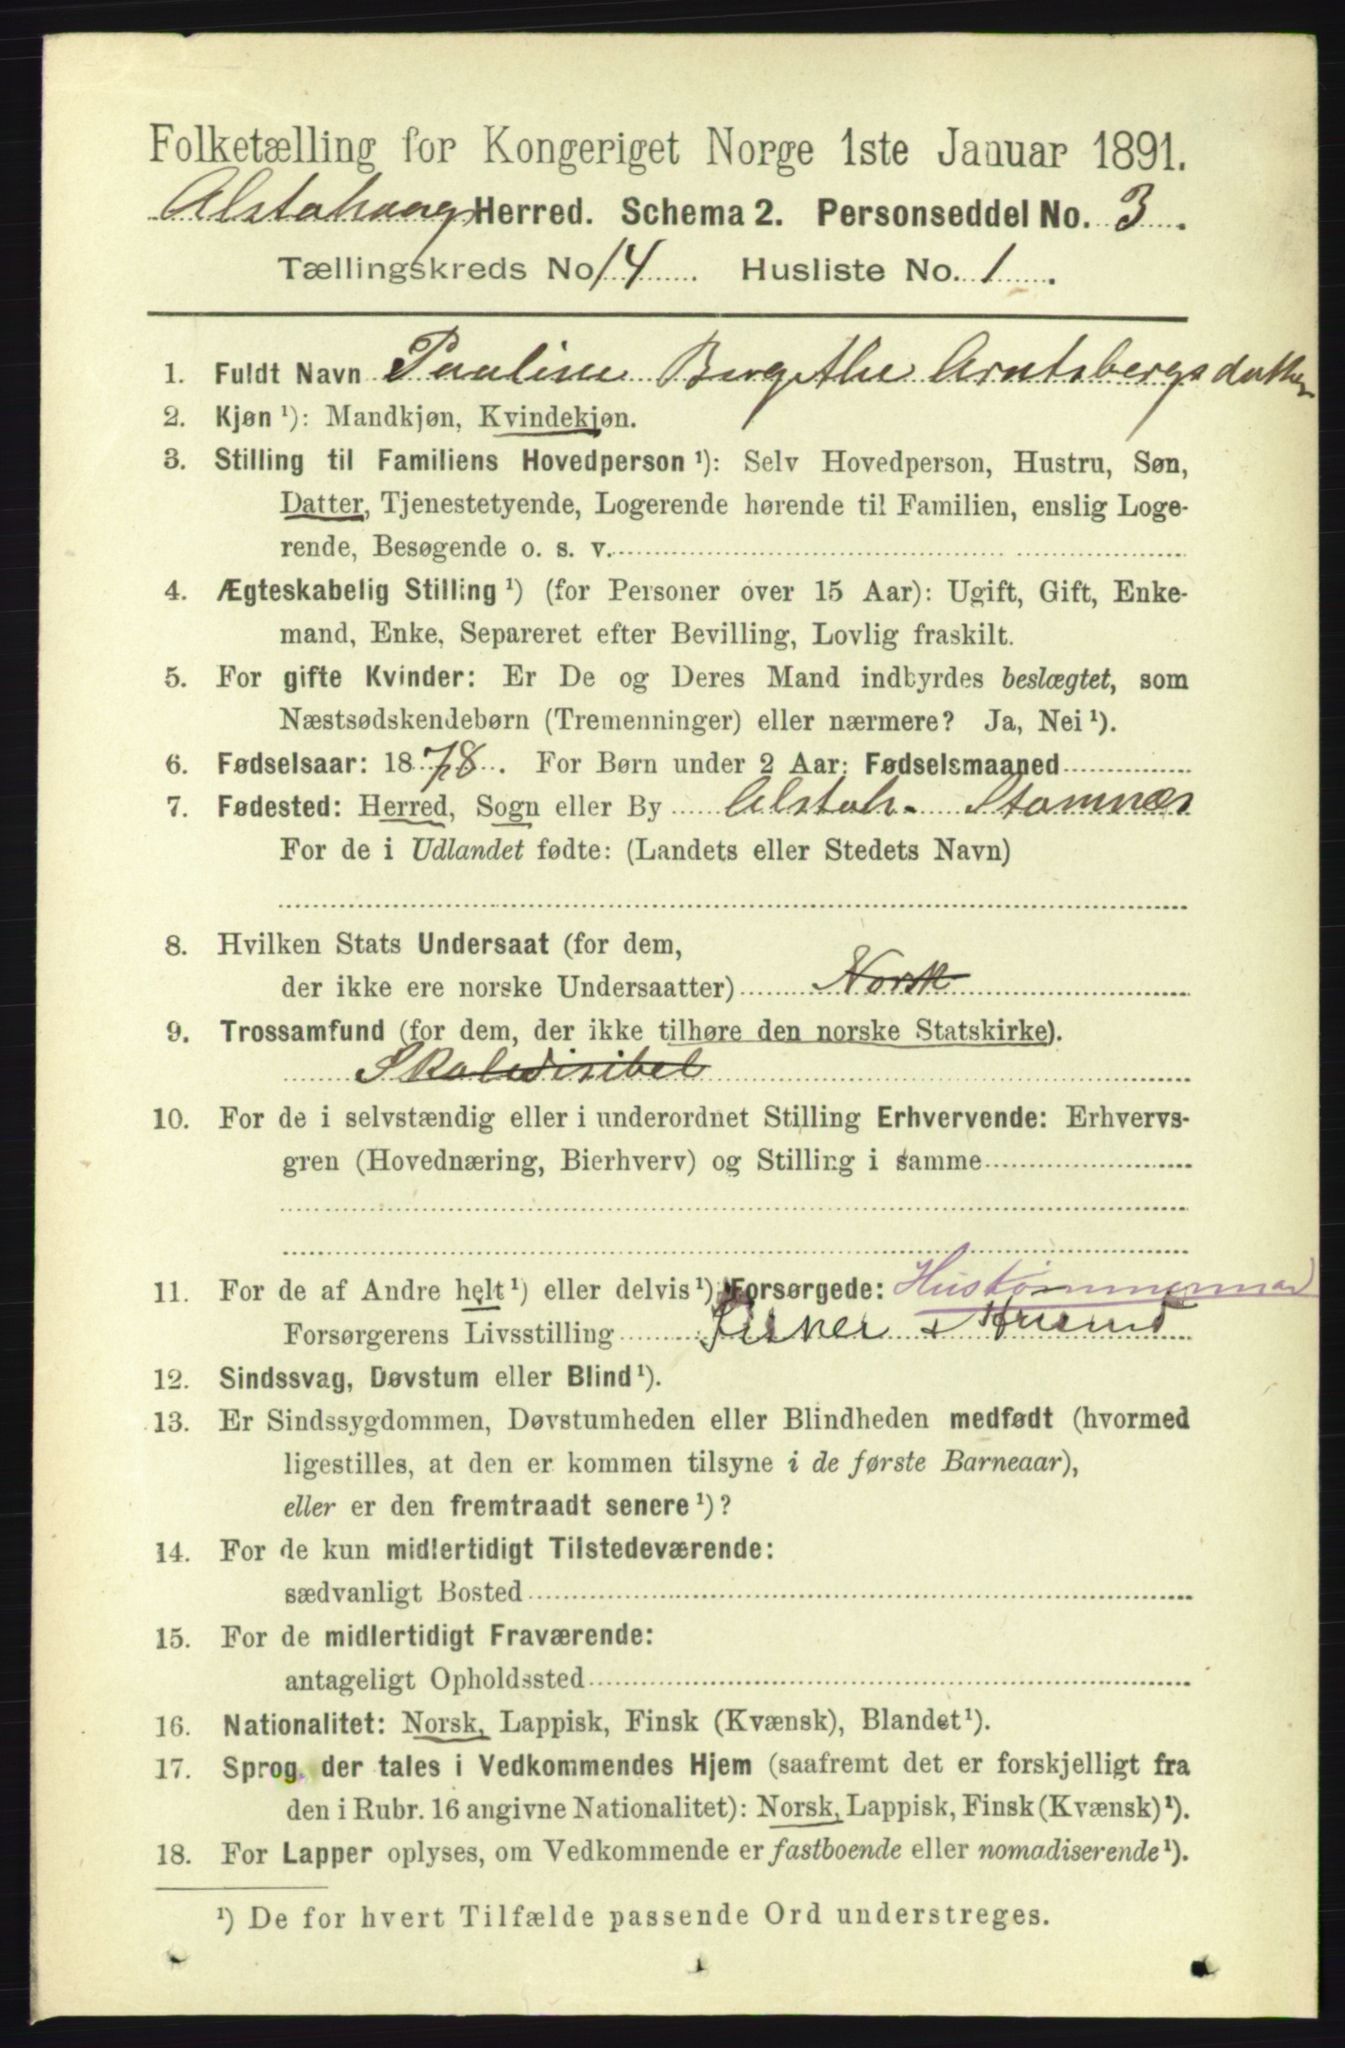 Folketælling for Kongeriget Norge 1ste Januar 1891.
Alstahaug Herred. Schema 2. Personseddel No. 3.
Tællingskreds No 14. Husliste No. 1.
1. Fuldt Navn Pauline Bergithe Arntsbergsdatter
2. Kjøn ¹): Mandkjøn, Kvindekjøn.
3. Stilling til Familiens Hovedperson ¹): Selv Hovedperson, Hustru, Søn,
Datter, Tjenestetyende, Logerende hørende til Familien, enslig Loge-
rende, Besøgende o. s. v.
4. Ægteskabelig Stilling ¹) (for Personer over 15 Aar): Ugift, Gift, Enke-
mand, Enke, Separeret efter Bevilling, Lovlig fraskilt.
5. For gifte Kvinder: Er De og Deres Mand indbyrdes beslægtet, som
Næstsødskendebørn (Tremenninger) eller nærmere? Ja, Nei ¹).
6. Fødselsaar: 1878. For Børn under 2 Aar: Fødselsmaaned
7. Fødested: Herred, Sogn eller By Alstah. Stamnæs
For de i Udlandet fødte: (Landets eller Stedets Navn)
8. Hvilken Stats Undersaat (for dem,
der ikke ere norske Undersaatter) Norsk
9. Trossamfund (for dem, der ikke tilhøre den norske Statskirke).
10. For de i selvstændig eller i underordnet Stilling Erhvervende: Erhvervs-
gren (Hovednæring, Bierhverv) og Stilling i samme
11. For de af Andre helt ¹) eller delvis ¹) Forsørgede: Hustømmermand
Forsørgerens Livsstilling Fisker
12. Sindssvag, Døvstum eller Blind ¹).
13. Er Sindssygdommen, Døvstumheden eller Blindheden medfødt (hvormed
ligestilles, at den er kommen tilsyne i de første Barneaar),
eller er den fremtraadt senere ¹)?
14. For de kun midlertidigt Tilstedeværende:
sædvanligt Bosted
15. For de midlertidigt Fraværende:
antageligt Opholdssted
16. Nationalitet: Norsk, Lappisk, Finsk (Kvænsk), Blandet ¹).
17. Sprog, der tales i Vedkommendes Hjem (saafremt det er forskjelligt fra
den i Rubr. 16 angivne Nationalitet): Norsk, Lappisk, Finsk (Kvænsk) ¹).
18. For Lapper oplyses, om Vedkommende er fastboende eller nomadiserende ¹).
¹) De for hvert Tilfælde passende Ord understreges.